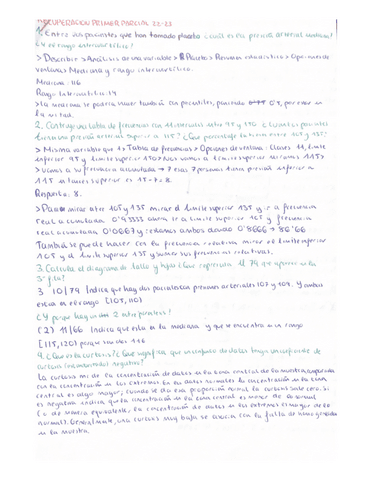 RECUPERACION PRIMER PARCIAL 22-23
1. Entre los pacientes que han tomado placebo ¿cuál es la presión arterial mediana?
¿Y el rango intercuartílico?
> Describir > Análisis de una variable > Placebo > Resumen estadístico > Opciones de
ventana > Mediana y rango intercuartílico.
Mediana: 116
Rango Intercuartílico: 14
> la mediana se podría hacer también con percentiles, poniendo 0'5, por ser
la mitad.
2. Construye una tabla de frecuencias con 11 intervalos entre 95 y 150 ¿Cuántos pacientes
tienen una presión arterial superior a 115? ¿Que porcentaje la tienen entre 105 y 135?
> Misma variable que 1 > Tabla de frecuencias > Opciones de ventana: Clases 11, límite
inferior 95 y límite superior 150 > Nos vamos a límite superior
> Vamos a su frecuencia acumulada → 7 esas 7 personas tienen presión inferior a
115 entonces superior es 15-7=8.
Respuesta: 8.
> Para mirar entre 105 y 135 mirar el límite superior 135 y ir a frecuencia
real acumulada 0'9333 ahora ir a límite superior 105 y frecuencia
real acumulada 0'0667 y restamos ambos dando 0'8666 → 86'66
También se puede hacer con la frecuencia relativa mirar el límite
105 y el límite superior 135 y sumar sus frecuencias relativas.
3. Calcula el diagrama de Tallo y hojas ¿Que representa el 79 que aparece en la
3ª fila?
3 10/79 Indica que hay dos pacientes con presiones arteriales 107 y 109. Y ambos
estan en el rango [105,110)
¿Y porque hay un 2 entre paréntesis?
(2) 11/66 Indica que esta es la mediana y que se encuentra en un rango
[115,120) porque sería 116
4. ¿Que es la curtosis? ¿Que significa que un conjunto de datos tenga un coeficiente de
curtosis (estandarizado) negativo?
La curtosis mide la concentración de datos en la zona central de la muestra comparada
con la concentración en los extremos. En los datos normales la concentración en la zona
central es algo mayor; cuando se da esa proporción normal la curtosis vale cero. Si
es negativa indica que la concentración en la zona central es menor de lo normal
(o de manera equivalente, la concentración de datos en los extremos es mayor de lo
normal). Generalmente, una curtosis muy baja se asocia con la falta de homogeneidad
en la muestra.